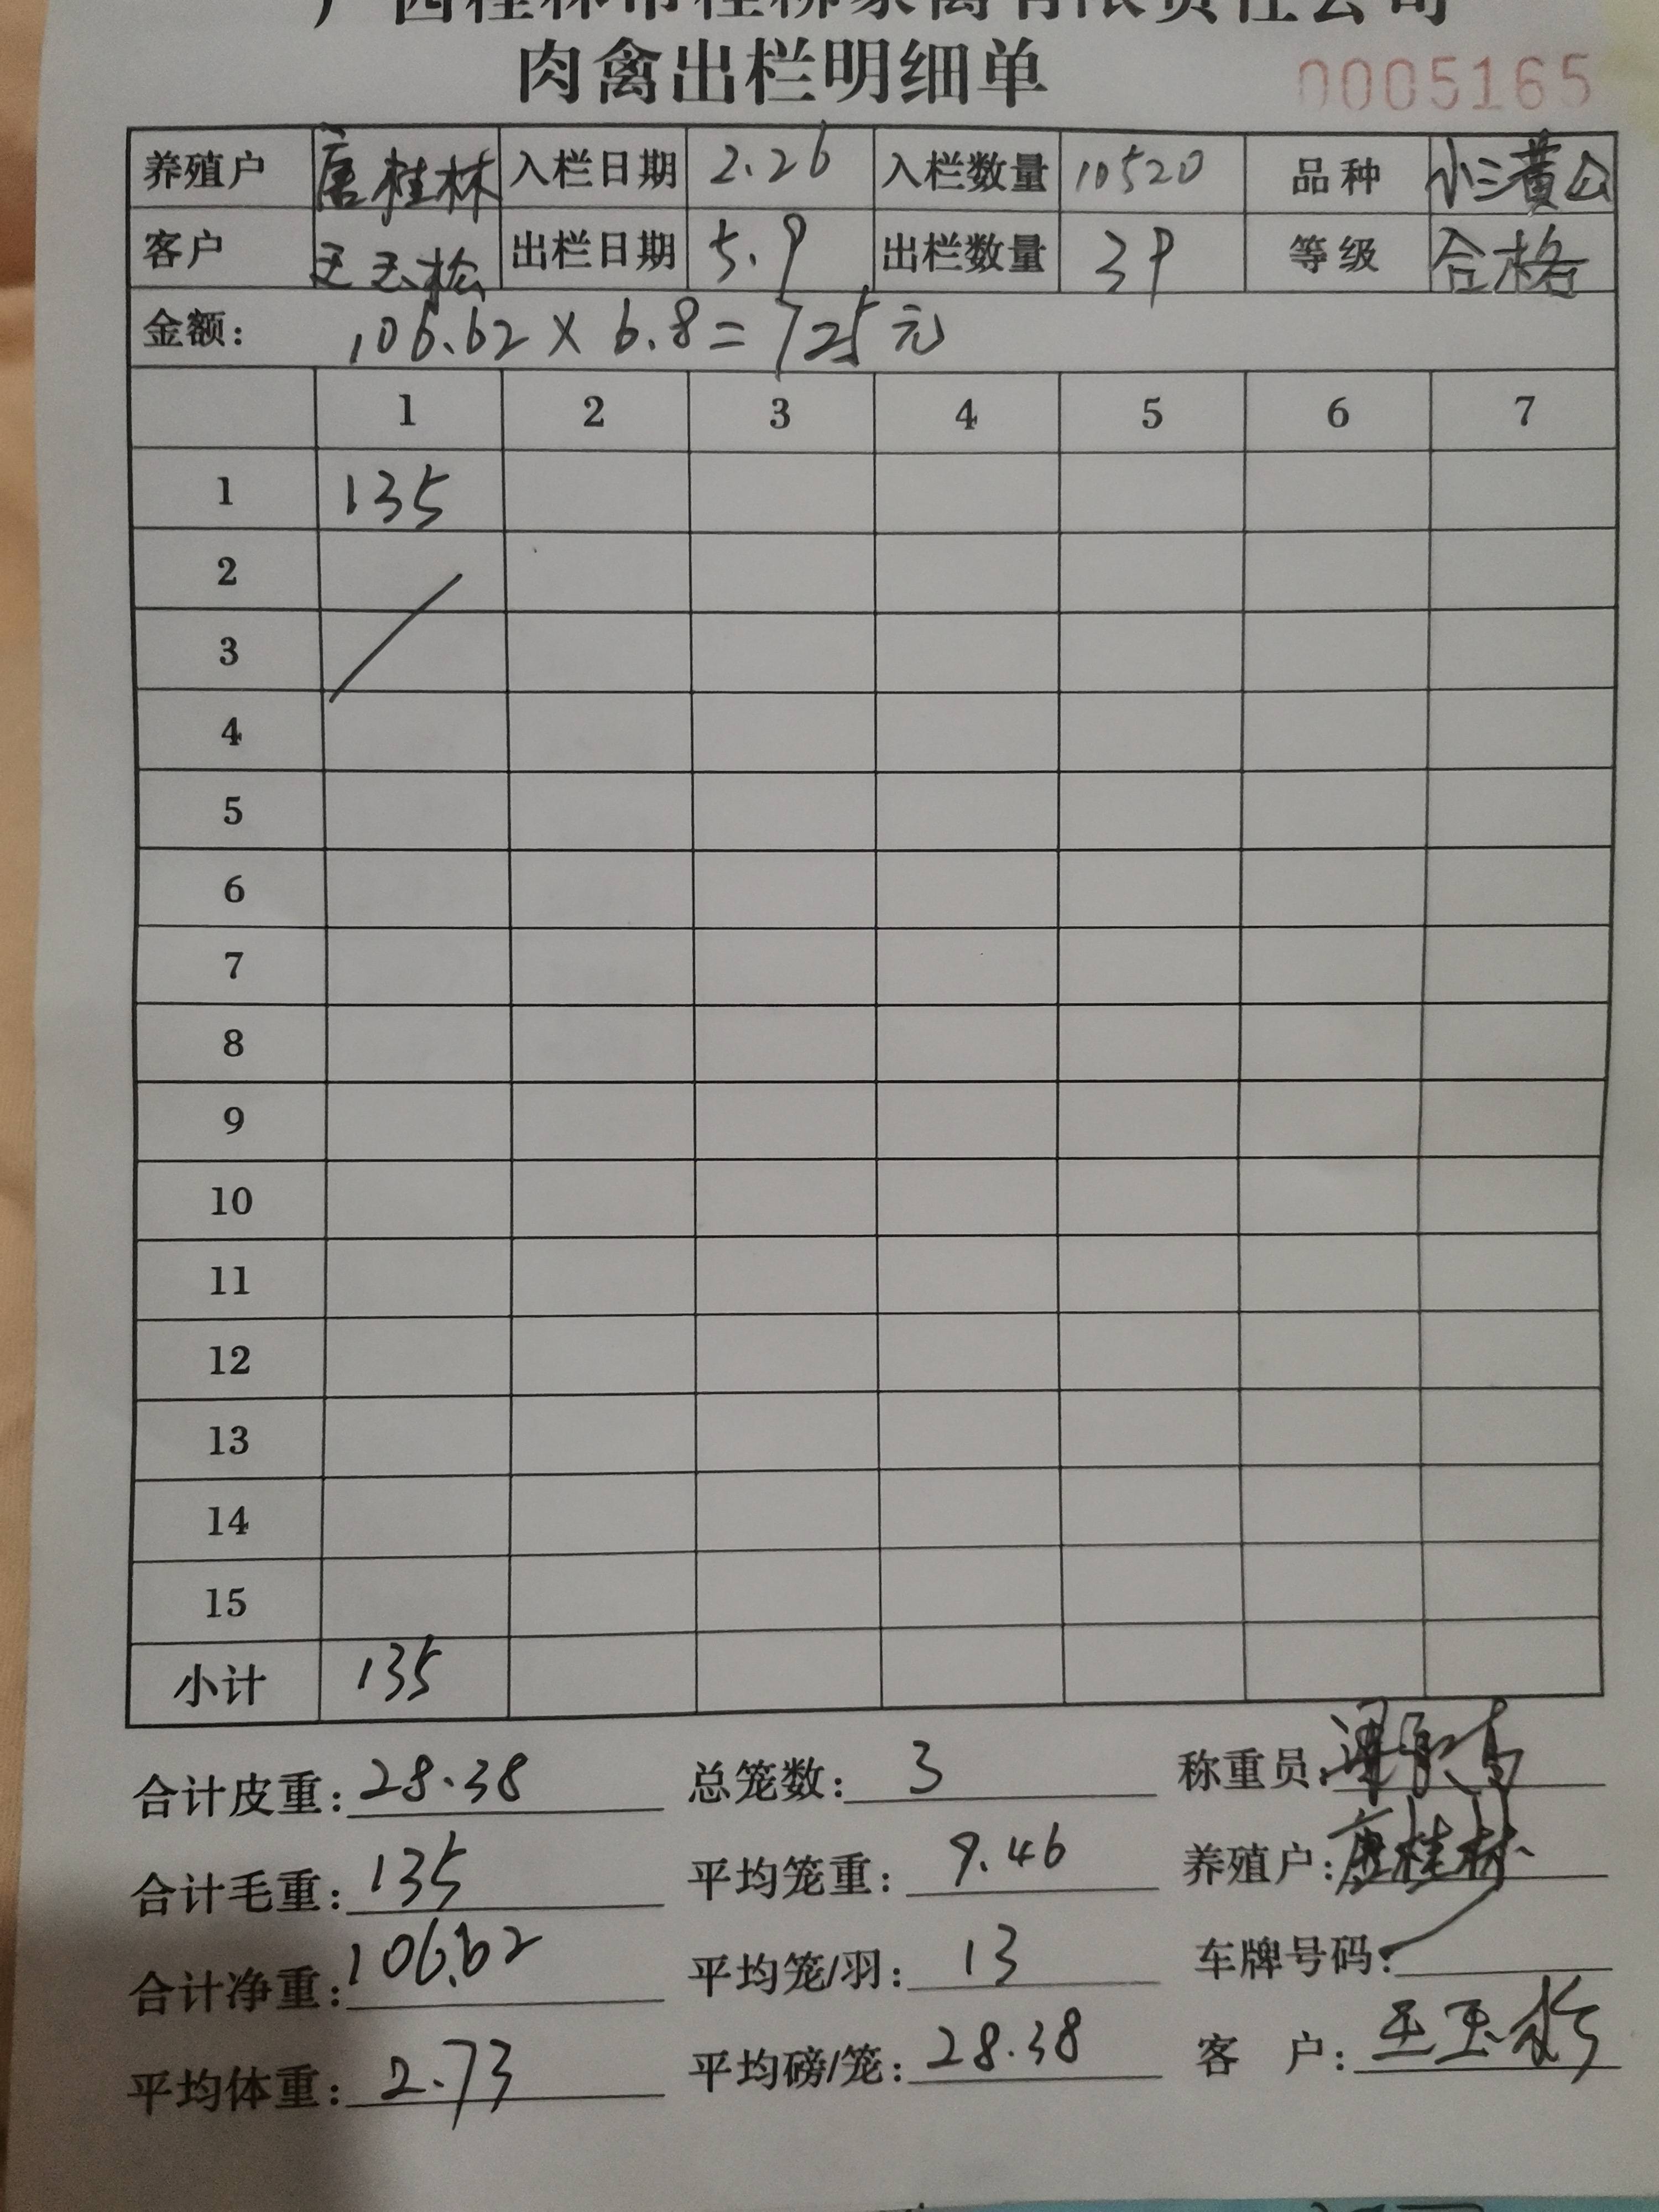 广西桂林市桂柳家禽有限责任公司
肉禽出栏明细单 0005165
养殖户 唐桂林 入栏日期 2.26 入栏数量 10520 品种 小三黄公
客户 王玉松 出栏日期 5.9 出栏数量 39 等级 合格
金额: 106.62 × 6.8 = 725元
1 2 3 4 5 6 7
1 135
2
3
4
5
6
7
8
9
10
11
12
13
14
15
小计 135
合计皮重: 28.38 总笼数: 3 称重员:
合计毛重: 135 平均笼重: 9.46 养殖户: 唐桂林
合计净重: 106.62 平均笼/羽: 13 车牌号码:
平均体重: 2.73 平均磅/笼: 28.38 客 户: 王玉松